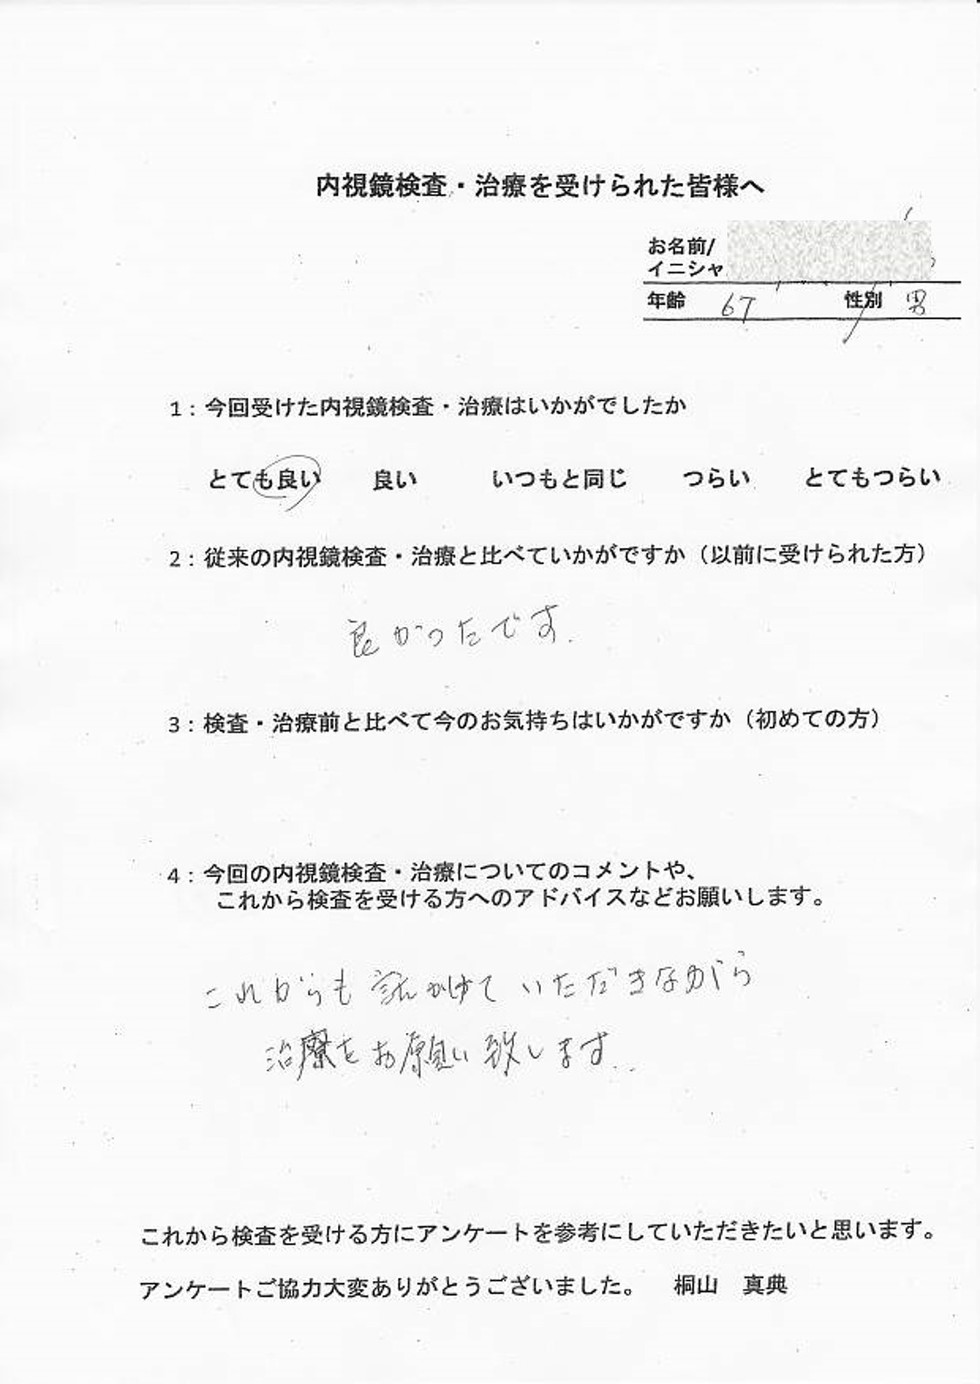 内視鏡検査・治療を受けられた皆様へ
お名前/
イニシャ
年齢 67 性別 男
1：今回受けた内視鏡検査・治療はいかがでしたか
とても良い 良い いつもと同じ つらい とてもつらい
2：従来の内視鏡検査・治療と比べていかがですか（以前に受けられた方）
良かったです.
3：検査・治療前と比べて今のお気持ちはいかがですか（初めての方）
4：今回の内視鏡検査・治療についてのコメントや、
これから検査を受ける方へのアドバイスなどお願いします。
これからも 話かけて いただきながら
治療を お願い 致します..
これから検査を受ける方にアンケートを参考にしていただきたいと思います。
アンケートご協力大変ありがとうございました。 桐山 真典